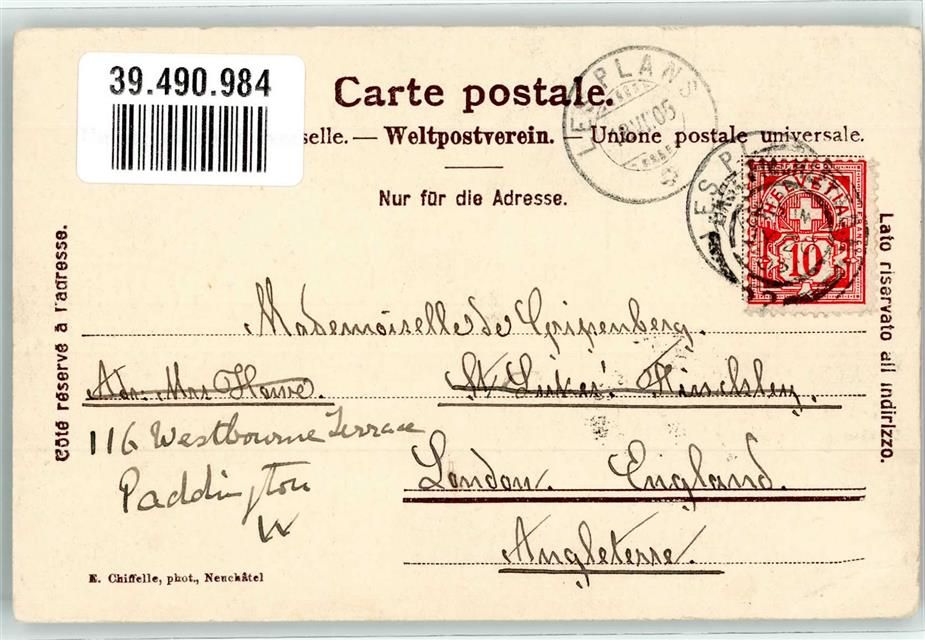 39.490.984
Carte postale.
selle. — Weltpostverein. — Unione postale universale.
Nur für die Adresse.
LES PLANS
05
LES P
HELVETIA
FRANCO
10
Côté réservé à l'adresse.
Lato riservato all indirizzo.
Mademoiselle de Gripenberg.
Adr. Mrs Howe. St Lukes' Hinckley.
116 Westbourne Terrace
Paddington
W
London. England.
Angleterre.
E. Chiffelle, phot., Neuchâtel